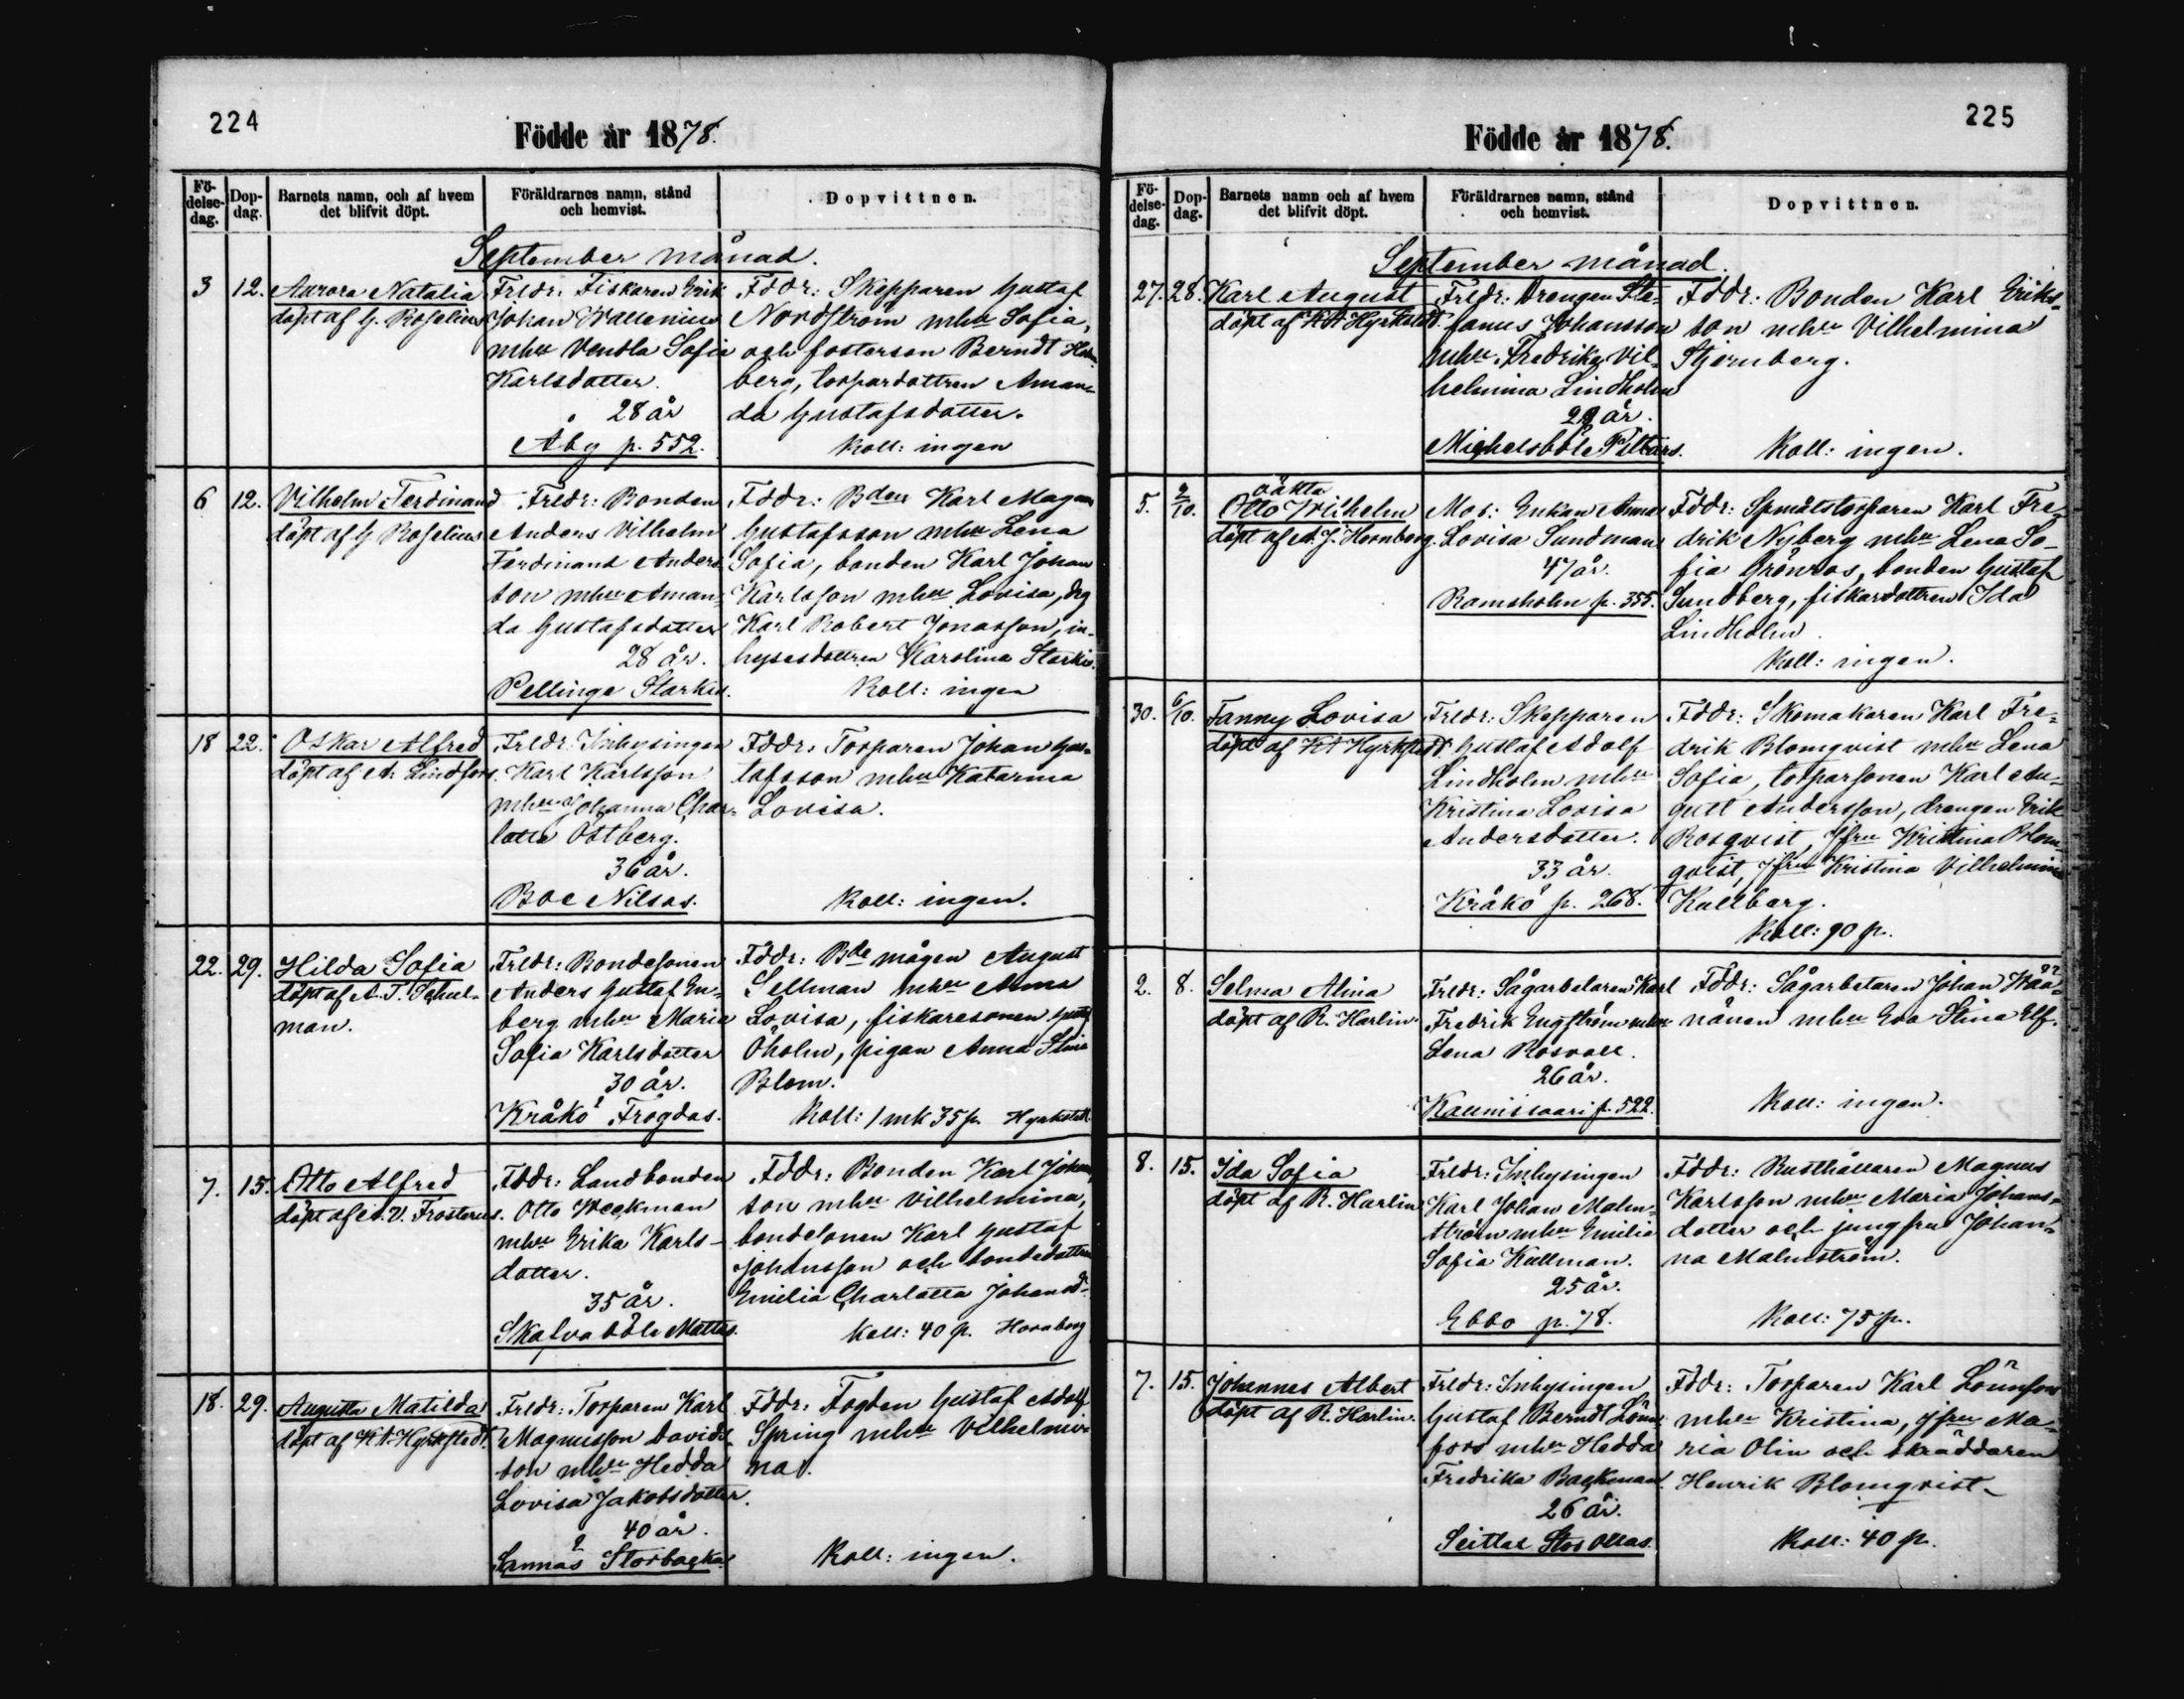 224
Födde år 1878.
Fö-
delse-
dag.
Dop-
dag.
Barnets namn, och af hvem
det blifvit döpt.
Föräldrarnes namn, stånd
och hemvist.
Dopvittnen.
September månad.
3
12.
Aurora Natalia
döpt af G. Roselius
Frldr: Fiskaren Erik
Johan Wallenius
mhu Vendla Sofia
Karlsdotter.
28 år
Åby p. 552.
Fddr: Skepparen Gustaf
Nordström mhu Sofia,
och fosterson Berndt Holm-
berg, torpardottren Aman-
da Gustafsdotter.
Koll: ingen
6
12.
Vilhelm Ferdinand
döpt af G Roselius
Frldr: Bonden
Anders Vilhelm
Ferdinand Anders-
son mhu Aman-
da Gustafsdotter
28 år.
Pellinge Starkis.
Fddr: Bden Karl Magnus
Gustafsson mhu Lena
Sofia, bonden Karl Johan
Karlsson mhu Lovisa, drg
Karl Robert Jonasson, in-
hysesdottren Karolina Starkis.
Koll: ingen
18
22.
Oskar Alfred
döpt af A. Lindfors.
Frldr: Inhysingen
Karl Karlsson
mhu Johanna Char-
lotta Östberg.
36 år.
Boe Nilsas.
Fddr: Torparen Johan Gus-
tafsson mhu Katarina
Lovisa.
Koll: ingen.
22.
29.
Hilda Sofia
döpt af A. T. Schul-
man.
Frldr: Bondesonen
Anders Gustaf En-
berg mhu Maria
Sofia Karlsdotter
30 år.
Kråkö Frogdas.
Fddr: Bde mågen August
Sellman mhu Anna
Lovisa, fiskaresonen Gustaf
Öholm, pigan Anna Stina
Blom.
Koll: 1 mk 35 p. Hyrkstedt
7.
15.
Otto Alfred
döpt af A. V. Frosterus.
Fldr: Landbonden
Otto Weckman
mhu Erika Karls-
dotter.
35 år.
Skafvaböle Mattas.
Fddr: Bonden Karl Johans-
son mhu Vilhelmina,
bondesonen Karl Gustaf
Johansson och bondedottren
Emilia Charlotta Johansdr
Koll: 40 p. Hornborg
18.
29.
Augusta Matilda
döpt af K A Hyrkstedt.
Frldr: Torparen Karl
Magnusson Davids-
son mhu Hedda
Lovisa Jakobsdotter.
40 år.
Sannäs Storbacka.
Fddr: Fogden Gustaf Adolf
Spring mhu Vilhelmi-
na.
Koll: ingen.
225
Födde år 1878.
Fö-
delse-
dag.
Dop-
dag.
Barnets namn och af hvem
det blifvit döpt.
Föräldrarnes namn, stånd
och hemvist.
Dopvittnen.
September månad.
27.
28.
Karl August
döpt af K A Hyrkstedt.
Frldr: Drengen Ste-
fanus Johansson
mhu Fredrika Vil-
helmina Lindholm
år.
Mickelsböle Peltars.
Fddr: Bonden Karl Eriks-
son mhu Vilhelmina
Stjernberg.
Koll: ingen.
5.
2/10.
oäkta
Otto Vilhelm
döpt af A. J. Hornborg.
Mod: Enkan Anna
Lovisa Sundman
47 år.
Ramsholm p. 355.
Fddr: Spmålstorparen Karl Fre-
drik Nyberg mhu Lena So-
fia Grönros, bonden Gustaf
Sundberg, fiskardottren Ida
Lindholm.
Koll: ingen.
30.
6/10.
Fanny Lovisa
döpt af K A Hyrkstedt.
Frldr: Skepparen
Gustaf Adolf
Lindholm mhu
Kristina Lovisa
Andersdotter.
33 år.
Kråkö p. 268.
Fddr: Skomakaren Karl Fre-
drik Blomqvist mhu Lena
Sofia, torparsonen Karl Au-
gust Andersson, drengen Erik
Rosqvist, Jfrun Kristina Blom-
qvist, Jfrun Kristina Vilhelmina
Kullberg.
Koll: 90 p.
2.
8.
Selma Alina
döpt af R. Harlin.
Frldr: Sågarbetaren Karl
Fredrik Engström mhu
Lena Rosvall.
26 år.
Kaunissaari p. 522.
Fddr: Sågarbetaren Johan Wää-
nänen mhu Eva Stina Elf.
Koll: ingen.
8.
15.
Ida Sofia
döpt af R. Harlin
Frldr: Inhysingen
Karl Johan Malm-
ström mhu Emilia
Sofia Kullman.
25 år.
Ebbo p. 78.
Fddr: Rusthållaren Magnus
Karlsson mhu Maria Johans-
dotter och jungfru Johan-
na Malmström.
Koll: 75 p.
7.
15.
Johannes Albert
döpt af R. Harlin.
Frldr: Inhysingen
Gustaf Berndt Lönn-
fors mhu Hedda
Fredrika Backman.
26 år.
Seitlas Stor Ollas.
Fddr: Torparen Karl Lönnfors
mhu Kristina, jfrun Ma-
ria Olin och skräddaren
Henrik Blomqvist.
Koll: 40 p.